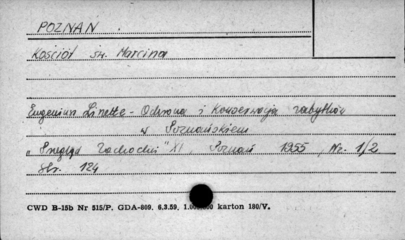 POZNAN
Kościół św. Marcina
Eugeniusz Linette - Ochrona i konserwacja zabytków
w Poznańskiem
„Przegląd Zachodni" XI, Poznań 1955, Nr. 1/2
str. 124
CWD B-15b Nr 515/P. GDA-809. 6.3.59. karton 180/V.